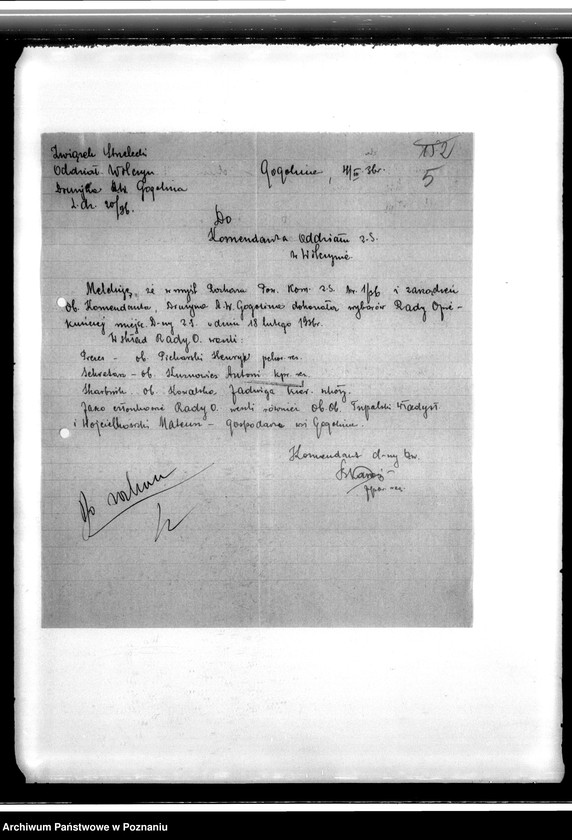 Związek Strzelecki
Oddział Wilczyn
Drużyna Żw. Gogolina
L.dz. 20/36.
Gogolina, III 36r.
152
5
Do
Komendanta Oddziału Z.S.
w Wilczynie
Melduję, że w myśl Rozkazu Kom. Z.S. Nr. 1/36 i zarządzeń
Ob. Komendanta, Drużyna Ż.W. Gogolina dokonała wyborów Rady Opie-
kuńczej D-ny Z.S. w dniu 18 lutego 1936r.
W skład Rady O. weszli:
Prezes - ob. Piekarski Henryk rez.
Sekretarz - ob. Antoni kpr. rez.
Skarbnik ob. Kowalska Jadwiga kier. szkoły.
Jako członkowie Rady O. weszli również Ob. Ob. Tupalski Władysł.
i Wojciechowski Mateusz - gospodarze wsi Gogolina.
Komendant d-ny Żw.
Do rozkazu
Archiwum Państwowe w Poznaniu